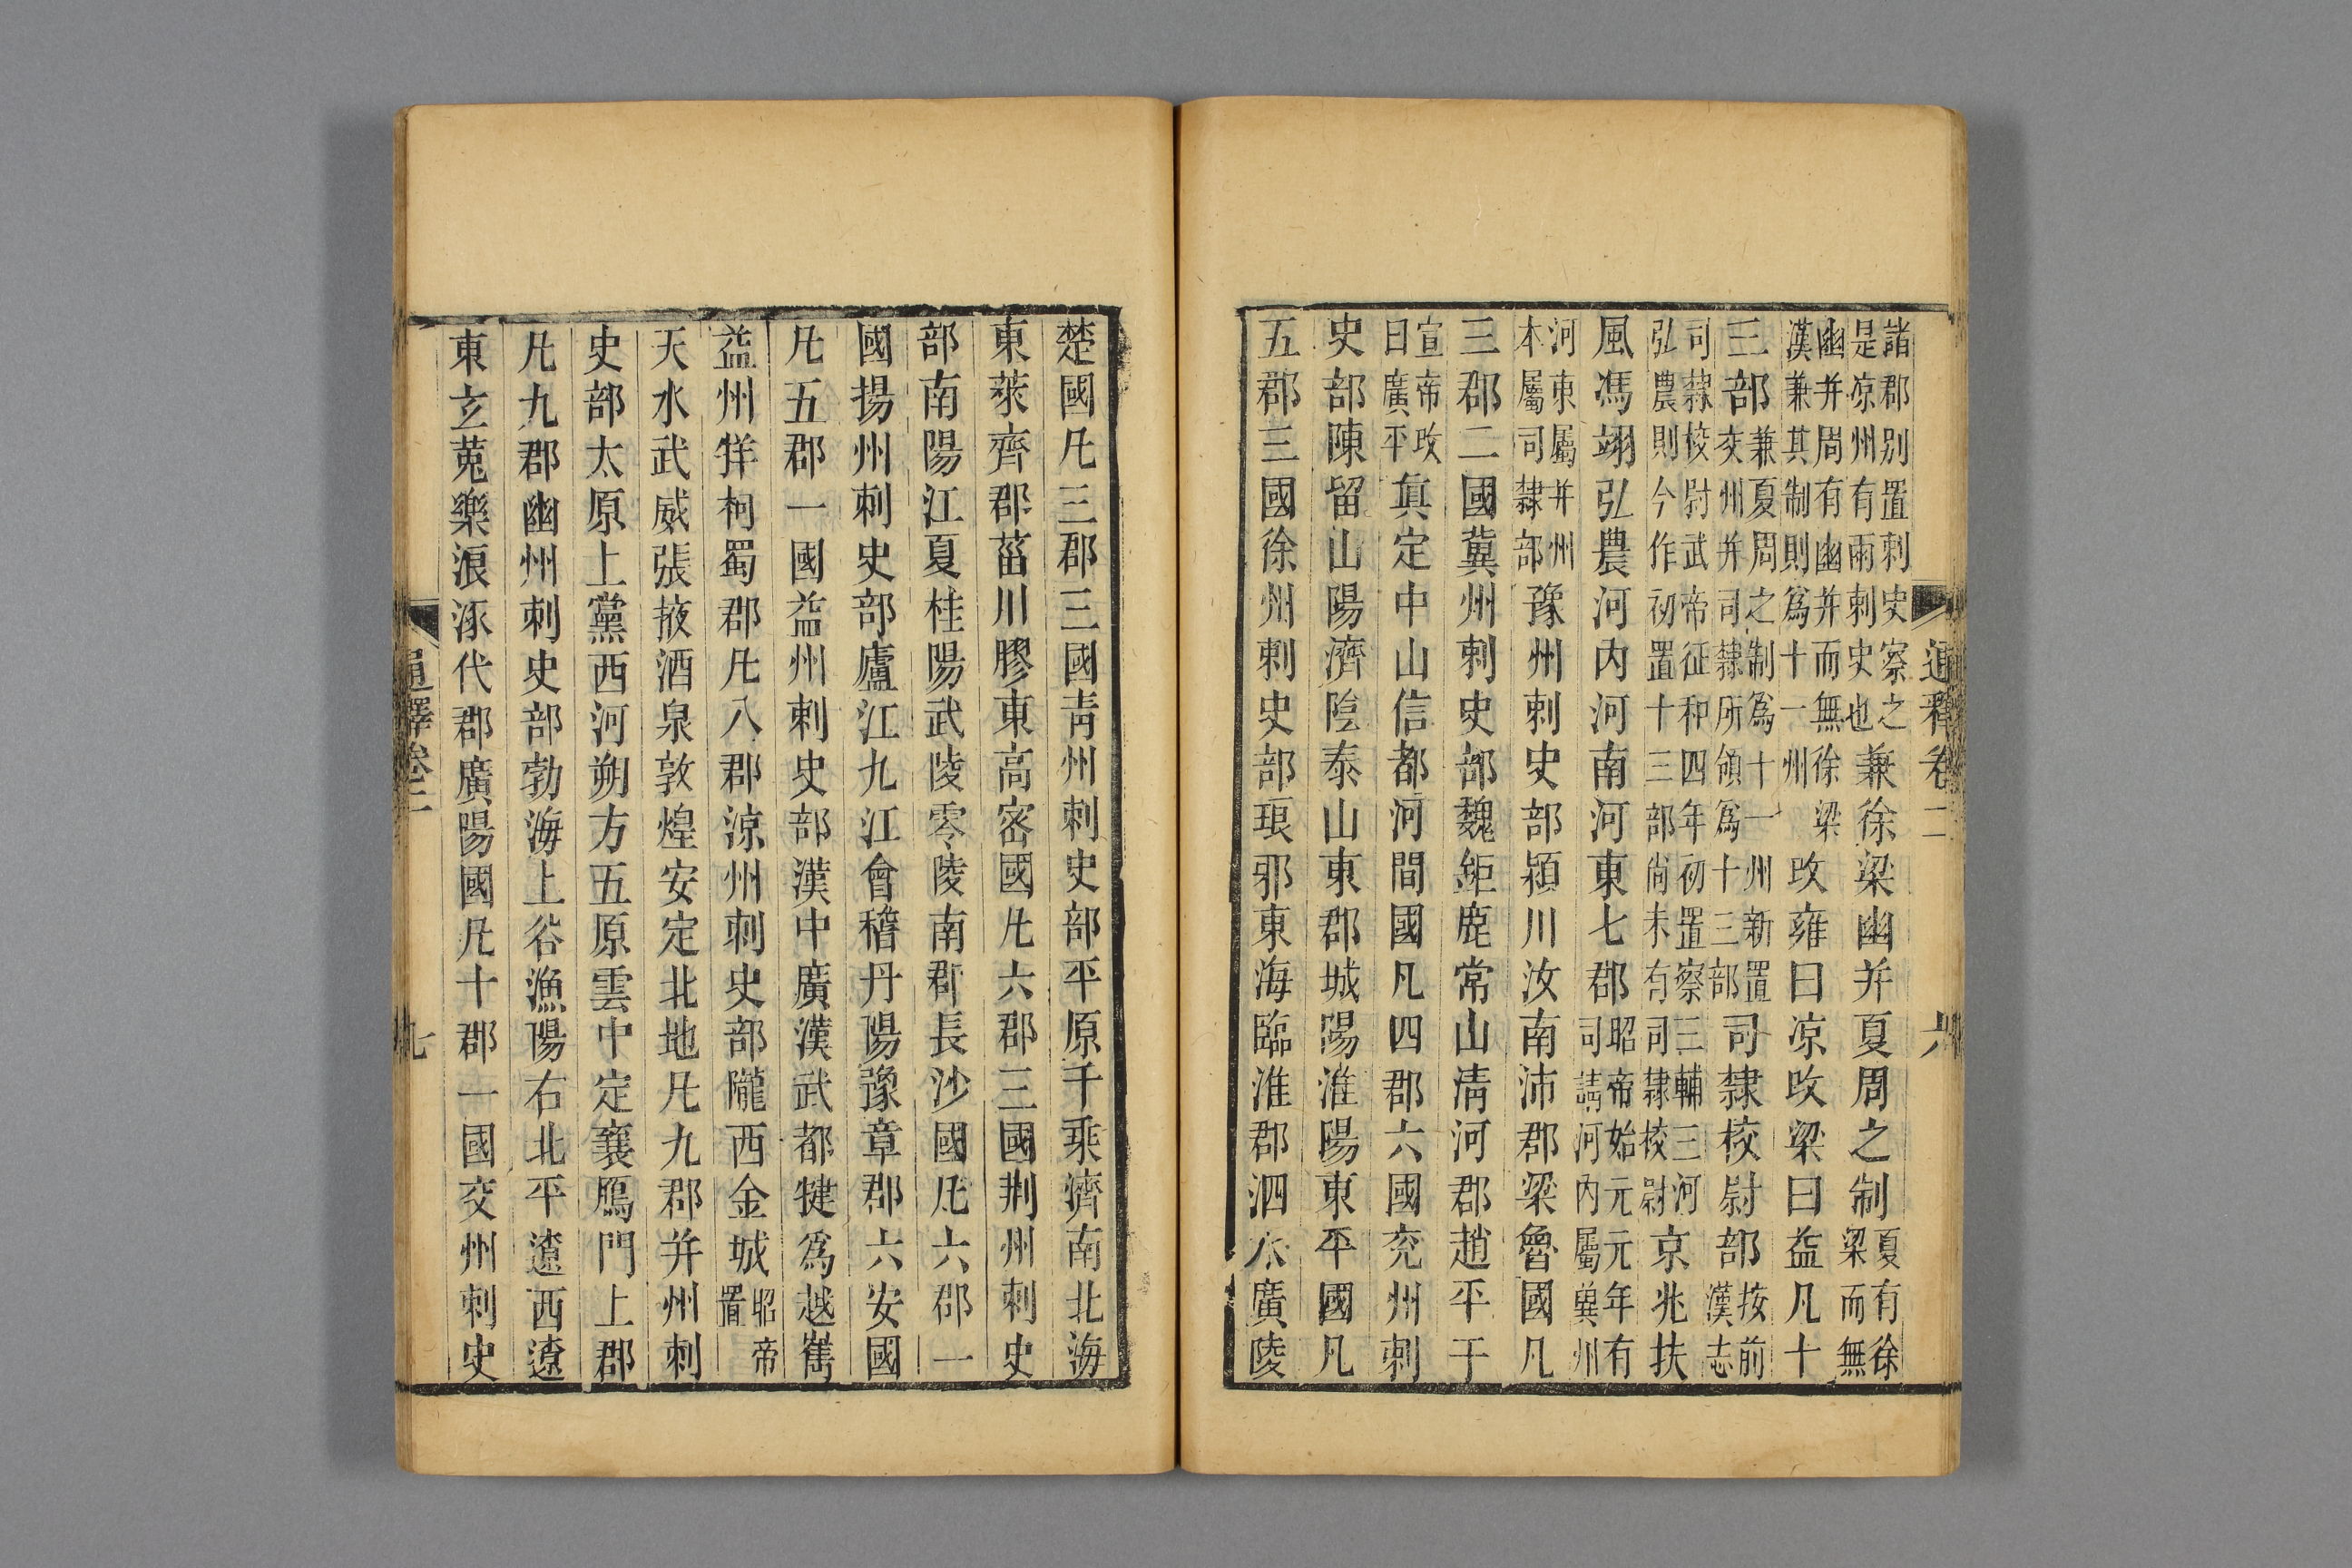 諸郡别置刺史察之
是凉州有兩刺史也
兼徐梁幽并夏周之制
夏有徐
梁而無
幽并周有幽并而無徐梁
漢兼其制則爲十一州
改雍曰凉改梁曰益凡十
三部
兼夏周之制爲十一州新置
交州并司隸所領爲十三部
司隸校尉部
按前
漢志
司隸校尉武帝征和四年初置察三輔三河
弘農則今作初置十三部尚未有司隸校尉
京兆扶
風馮翊弘農河内河南河東七郡
昭帝始元元年有
司請河内屬冀州
河東屬并州
本屬司隸部
豫州刺史部潁川汝南沛郡梁魯國凡
三郡二國冀州刺史部魏鉅鹿常山清河郡趙平于
宣帝改
曰廣平
真定中山信都河間國凡四郡六國兖州刺
史部陳留山陽濟陰泰山東郡城陽淮陽東平國凡
五郡三國徐州刺史部琅邪東海臨淮郡泗水廣陵
通釋卷二
六
楚國凡三郡三國青州刺史部平原千乘濟南北海
東萊齊郡菑川膠東高密國凡六郡三國荆州刺史
部南陽江夏桂陽武陵零陵南郡長沙國凡六郡一
國揚州刺史部廬江九江會稽丹陽豫章郡六安國
凡五郡一國益州刺史部漢中廣漢武都犍爲越嶲
益州牂柯蜀郡凡八郡凉州刺史部隴西金城
昭帝
置
天水武威張掖酒泉敦煌安定北地凡九郡并州刺
史部太原上黨西河朔方五原雲中定襄鴈門上郡
凡九郡幽州刺史部勃海上谷漁陽右北平遼西遼
東玄菟樂浪涿代郡廣陽國凡十郡一國交州刺史
通釋卷二
七